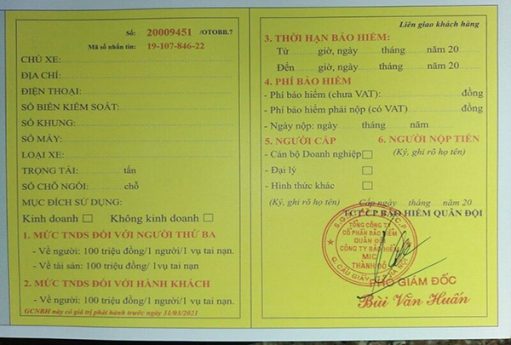 Số: 20009451 /OTOBB.7
Mã số nhắn tin: 19-107-846-22
CHỦ XE:
ĐỊA CHỈ:
ĐIỆN THOẠI:
SỐ BIỂN KIỂM SOÁT:
SỐ KHUNG:
SỐ MÁY:
LOẠI XE:
TRỌNG TẢI: tấn
SỐ CHỖ NGỒI: chỗ
MỤC ĐÍCH SỬ DỤNG:
Kinh doanh Không kinh doanh
1. MỨC TNDS ĐỐI VỚI NGƯỜI THỨ BA
- Về người: 100 triệu đồng/1 người/1 vụ tai nạn.
- Về tài sản: 100 triệu đồng/ 1vụ tai nạn
2. MỨC TNDS ĐỐI VỚI HÀNH KHÁCH
- Về người: 100 triệu đồng/1 người/1 vụ tai nạn.
GCNBH này có giá trị phát hành trước ngày 31/03/2021
Liên giao khách hàng
3. THỜI HẠN BẢO HIỂM:
Từ giờ, ngày tháng năm 20
Đến giờ, ngày tháng năm 20
4. PHÍ BẢO HIỂM
- Phí bảo hiểm (chưa VAT): đồng
- Phí bảo hiểm phải nộp (có VAT): đồng
- Ngày nộp: ngày tháng năm
5. NGƯỜI CẤP 6. NGƯỜI NỘP TIỀN
- Cán bộ Doanh nghiệp (Ký, ghi rõ họ tên)
- Đại lý
- Hình thức khác
(Ký, ghi rõ họ tên) Cấp ngày tháng năm 20
TCT CP BẢO HIỂM QUÂN ĐỘI
TỔNG CÔNG TY
CỔ PHẦN BẢO HIỂM
QUÂN ĐỘI
CÔNG TY BẢO HIỂM
MIC
THÀNH ĐÔ
Q. CẦU GIẤY
PHÓ GIÁM ĐỐC
Bùi Văn Huấn